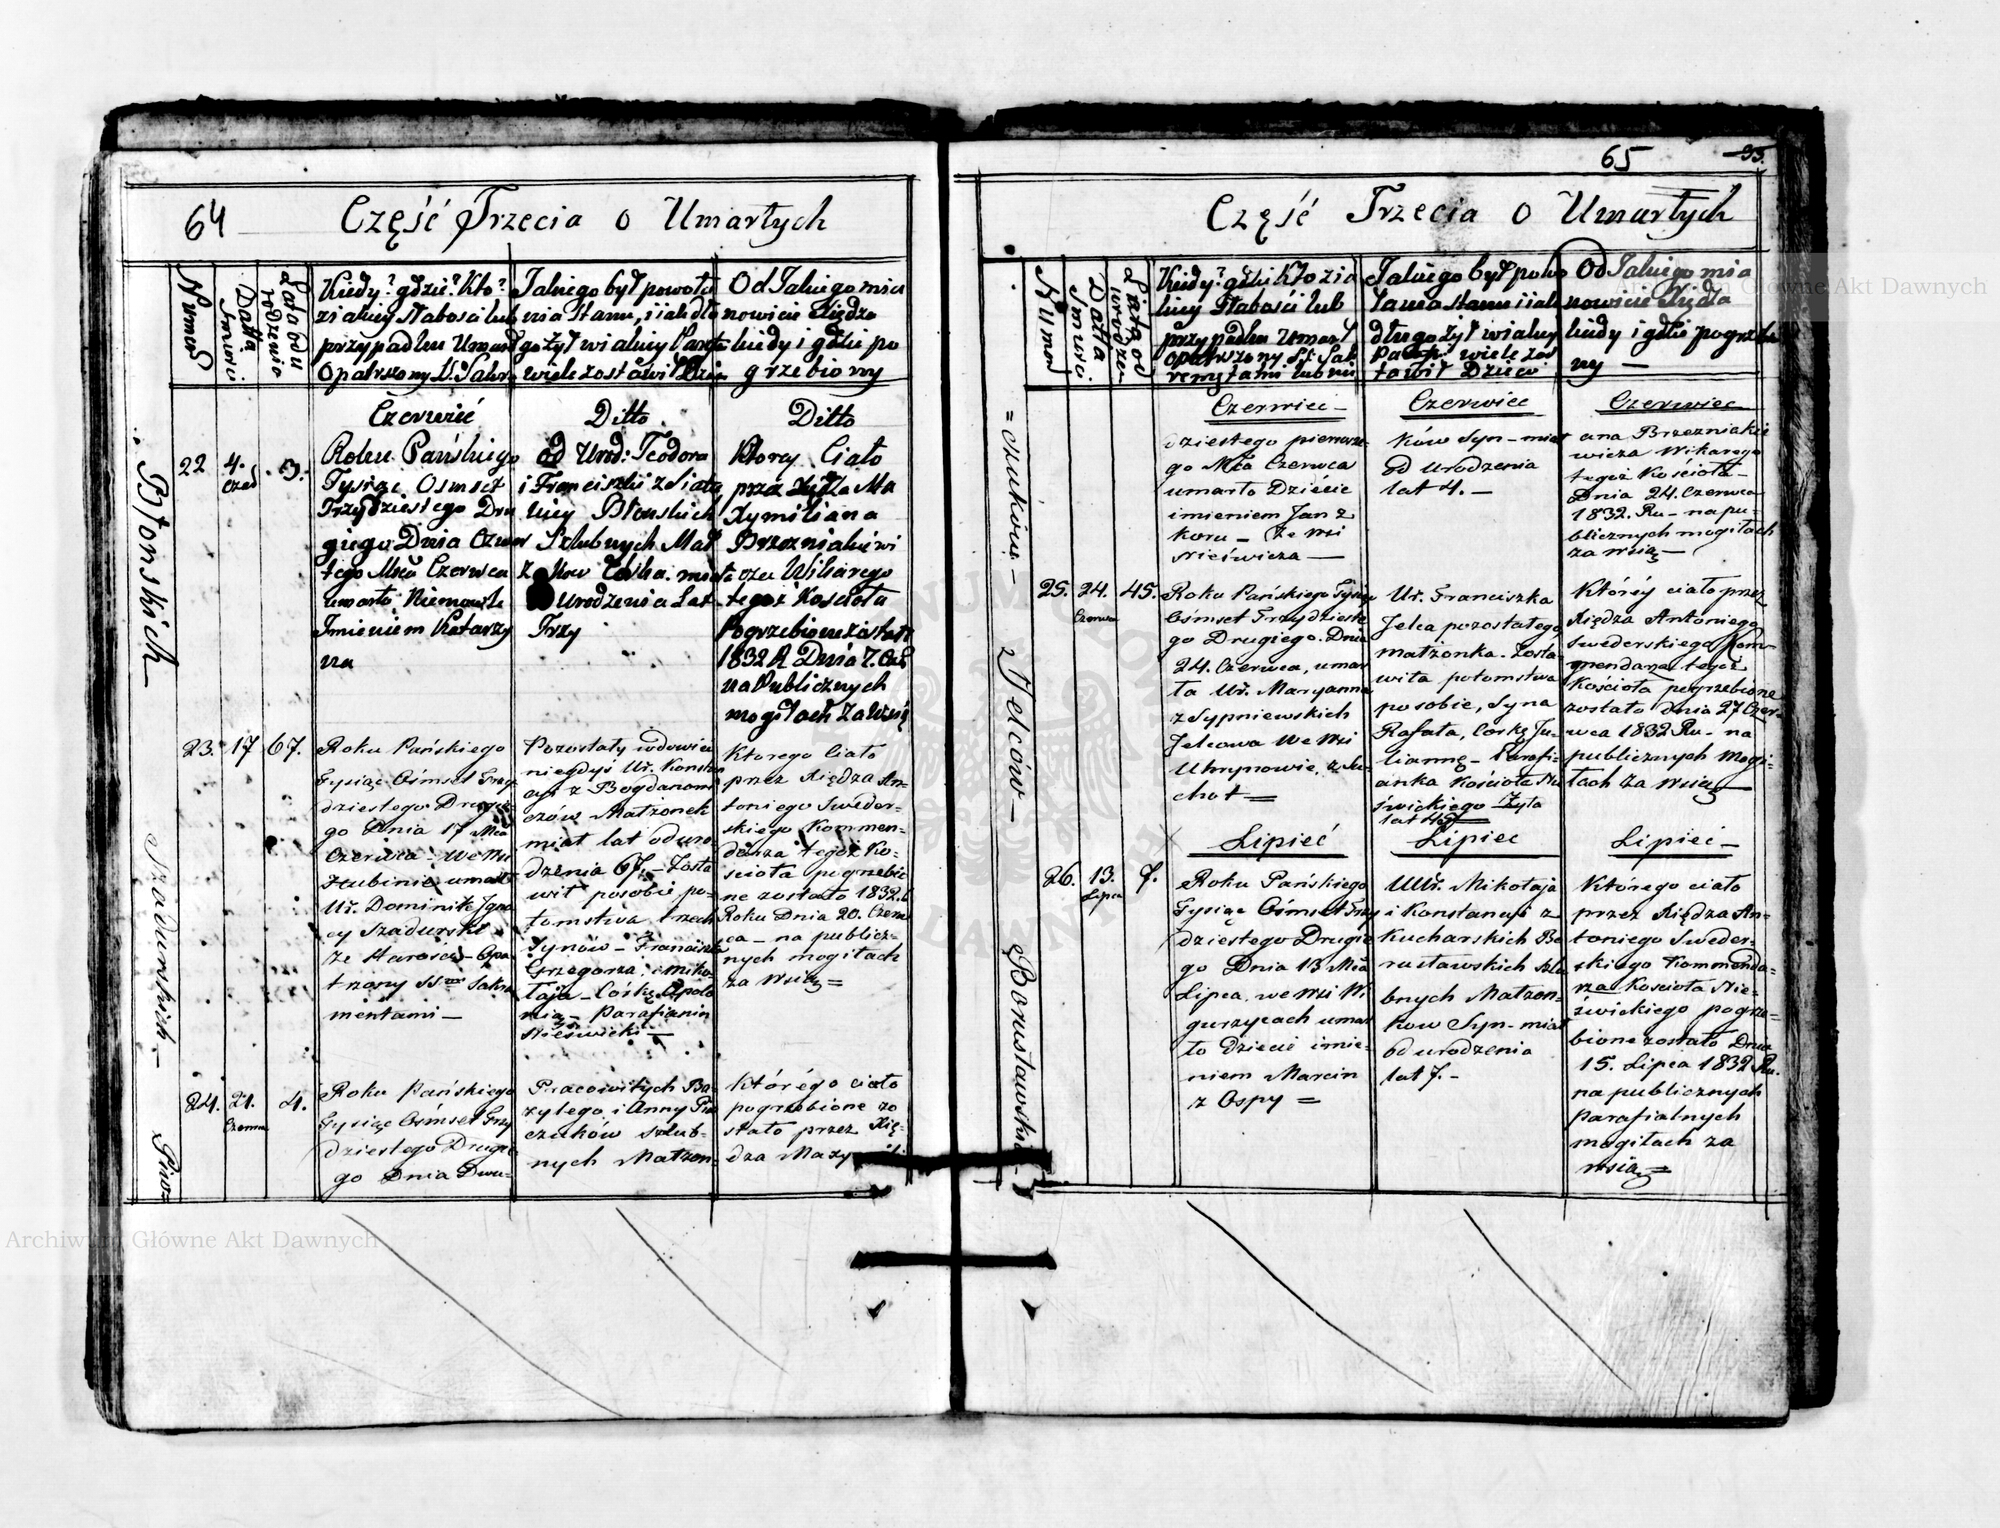 64
Część Trzecia o Umarłych
Numer
Datta Śmierci
Lata od urodzenia
Kiedy? gdzie? Kto?
z iakiey słabosci lub
przypadku Umarł
Opatrzony SS. Sakra
Jakiego był powoła
nia Stanu, i iak dłu
go żył w iakiey Parafii
wiele zostawił Dzieci
Od Jakiego mia
nowicie Xiędza
kiedy i gdzie po
grzebiony
Czerwieć
Ditto
Ditto
Błonskich
22
4.
Czer
3.
Roku Pańskiego
Tysiąc Osmset
Trzydziestego Dru
giego Dnia Czwar
tego Mca Czerwca
umarło Niemowle
Imieniem Katarzy
na
od Urod: Teodora
i Franciszki z
Błonskich
Szlubnych Mał
z kow Corka. miała
Urodzenia Lat
Trzy
Ktorey Ciało
przez Xiędza Ma
xymiliana
Brzozniakiewi
cza Wikarego
tegoż Kościoła
Pogrzebione zostało
1832 R Dnia 7. Czer
na Publicznych
mogiłach za Wsią
Szadurskich
23.
17
67.
Roku Pańskiego
Tysiąc Ośmset Trzy
dziestego Drugie
go Dnia 17 Mca
Czerwca we Wsi
Hubinie umarł
Ur. Dominik Igna
cy Szadurski
Ze Starosci Opa
trzony SSmi Sakra
mentami
Pozostały wdowiec
niegdyś Ur. Konstan
cyi z Bogdanowi
czów Małżonek
miał lat od uro
dzenia 67. Zosta
wił po sobie po
tomstwa trzech
Synów Franciszka
Grzegorza i Miko
łaja Córkę Apolo
nią Parafianin
Nieświcki
Ktorego Ciało
przez Xiędza An
toniego Sweder
skiego Kommen
darza tegoż Ko
ścioła pogrzebio
ne zostało 1832.
Roku Dnia 20. Czerw
ca na publicz
nych mogiłach
za Wsią
24.
21.
Czerwca
4.
Roku Pańskiego
Tysiąc Ośmset Trzy
dziestego Drugie
go Dnia Dwu-
Pracowitych Ba
zylego i Anny
czuków szlub-
nych Małżon-
Którego ciało
pogrzebione zo
stało przez Xię-
dza Maxy
65
95.
Część Trzecia o Umarłych
Numer
Datta Śmierci
Lata od urodze
Kiedy? gdzie Kto z ia
kiey Słabości lub
przypadku Umarł
Opatrzony SS. Sak
ramentami lub nie
Jakiego był powo
łania stanu i iak
długo żył w iakiey
Parafi wiele zos
tawił Dzieci
Od Jakiego mia
nowicie Xiędza
kiedy i gdzie pogrzebio
ny
Czerwiec
Czerwiec
Czerwiec
dziestego pierwsze
go Mca Czerwca
umarło Dziecie
imieniem Jan z
Koru Ze Wsi
Nieświcza
ków Syn miał
od Urodzenia
lat 4.
ana Brzezniakie
wicza Wikarego
tegoż Kościoła
Dnia 24. Czerwca
1832. Ru na pu-
blicznych mogiłach
za Wsią
Jelców
25.
24.
Czerwca
45.
Roku Pańskiego Tysiąc
Ośmset Trzydzieste
go Drugiego. Dnia
24. Czerwca, umar
ła Ur. Maryanna
z Sypniewskich
Jelcowa We Wsi
Uhrynowie, z Su
chot
Ur. Franciszka
Jelca pozostałego
małżonka. Zosta
wiła potomstwa
po sobie, Syna
Rafała, Córkę Ju-
liannę Parafi-
anka Kościoła Nie
świckiego Żyła
lat 45
Któréy ciało przez
Xiędza Antoniego
Swederskiego Kom-
mendarza tegoż
Kościoła pogrzebione
zostało dnia 27 Czer-
wca 1832 Ru na
publicznych Mogi-
łach za Wsią
Lipieć
Lipiec
Lipieć
Borusławskich
26.
13.
Lipca
7.
Roku Pańskiego
Tysiąc Ośmset Trzy
dziestego Drugie
go Dnia 13 Mca
Lipca, we Wsi Wi
gurzycach umar
ło Dziecie imie-
niem Marcin
z Ospy
UUr. Mikołaja
i Konstancyi z
Kucharskich Bo
rusławskich Szlu
bnych Małżon-
kow Syn miał
od urodzenia
lat 7.
Którego ciało
przez Xiędza An-
toniego Sweder-
skiego Kommenda-
rza Kościoła Nie-
świckiego pogrze-
bione zostało Dnia
15. Lipca 1832 Ru.
na publicznych
Parafialnych
mogiłach za
wsią
Archiwum Główne Akt Dawnych
Archiwum Główne Akt Dawnych